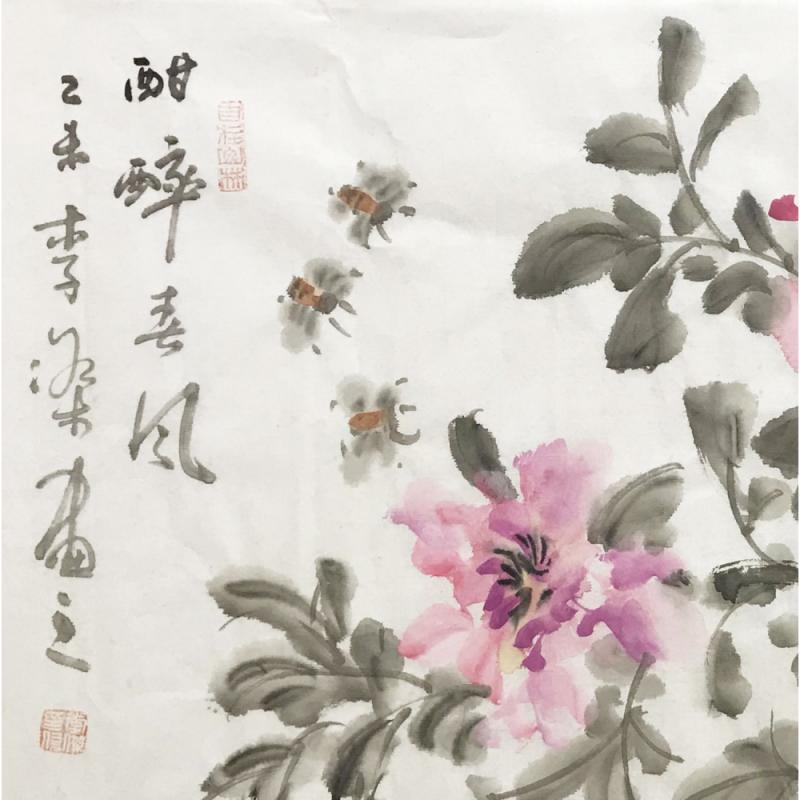 酣醉春风
乙未李梁画之